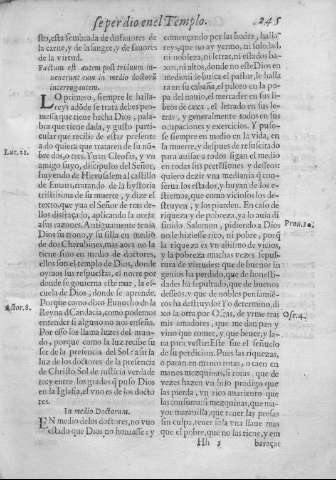 se perdio en el Templo. 245
sto, esta sembrada de dissauores de
la carne, y de la sangre, y de sauores
de la virtud.
Factum est autem post triduum in-
uenerunt eum in medio doctorũ
interrogantem.
LO primero, siempre le halla-
rey a dõde se trata de bes pro-
messa que tiene hecha Dios, pala-
bra que tiene dada, y gusto parti-
cular que recibe de estar presente
a do quiera que trataren de su nõ-
bre dos, o tres. Yuan Cleofas, y vn
amigo suyo, discipulos del Señor,
huyendo de Hierusalem al castillo
de Emaus, tratando de la hystoria
tristissima de su muerte, y dize el
texto, que yua el Señor de tras de-
llos disfraçado, aplicando la oreja
a sus razones. Antiguamente tenia
Dios su trono, y su silla en medio
de dos Cherubines, mas aora no la
tiene sino en medio de doctores,
ellos son el templo de Dios, donde
oyraos sus respuestas, el norte por
donde se gouierna este mar, la es-
cuela de Dios, donde se aprende.
Porque como dixo Eunucho de la
Reyna d Candacia, como podemos
entender si alguno no nos enseña.
Por esso los llama luzes del mun-
do, porque como la luz recibe su
ser de la presencia del Sol: assi la
luz de los doctores de la presencia
de Christo. Sol de justicia verdade
rey entre los grados q puso Dios
en la Iglesia, el vno es de los docto
res.
In medio Doctorum.
EN medio de los doctores, no vuo
estado que Dios no honrasse: y
començando por las bodas, halla-
rey, que no ay yermo, ni soledad,
ni nobles, ni letras, ni estados ba-
xos, ni altos, donde no este Dios en
medio: si le busca el pastor, le halla
ra en su cabaña, el piloto en la po
pa del nauio, el mercader en sus li-
bros de caxa, el letrado en sus le-
tras, y generalmente todos en sus
ocupaciones y exercicios. Y puso-
se siempre en medio en la vida, en
la muerte, y despues de resuscitado
para auisar a todos sigan el medio
en todas sus pretensiones y desseos:
quiero dezir vna mediania q con-
serua los estados, y huyan de los e-
stremos, que como viciosos los de-
struyen, y los pierden. En caso de
riqueza y de pobreza, ya lo auia di
simio Salomon, pidiendo a Dios
no le hiziesse rico, ni pobre, porq
la riqueza es vn abismo de vicios,
y la pobreza muchas vezes sepul-
tura de virtudes: que de buenos in
genios ha perdido, que de honesti-
dades ha sepultado, que de buenos
desseos, y que de nobles pensamiẽ-
tos ha destruydo! Yo determino, di
xo la otra por Oseas, de yrme tras
mis amadores, que me dan pan y
vino que comer, y que beuer, y la-
na para vestir: Este fue el señuelo
de su perdicion. Pues las riquezas,
o paran en manos rotas, o caen en
manos mezquinas, si rotas, que de
vezes hazen vn hijo prodigo que
las pierda, vn rico auariento que
las conserua: si mezquinas, que ma-
yor marauilla, que tener las presas
sin culpa, tener soltas vna llaue mas
que el pobre, que no las tiene, y em
Hh 3 baraçar
Luc. 24.
Actor. 8.
Prou. 30.
Ose. 4.